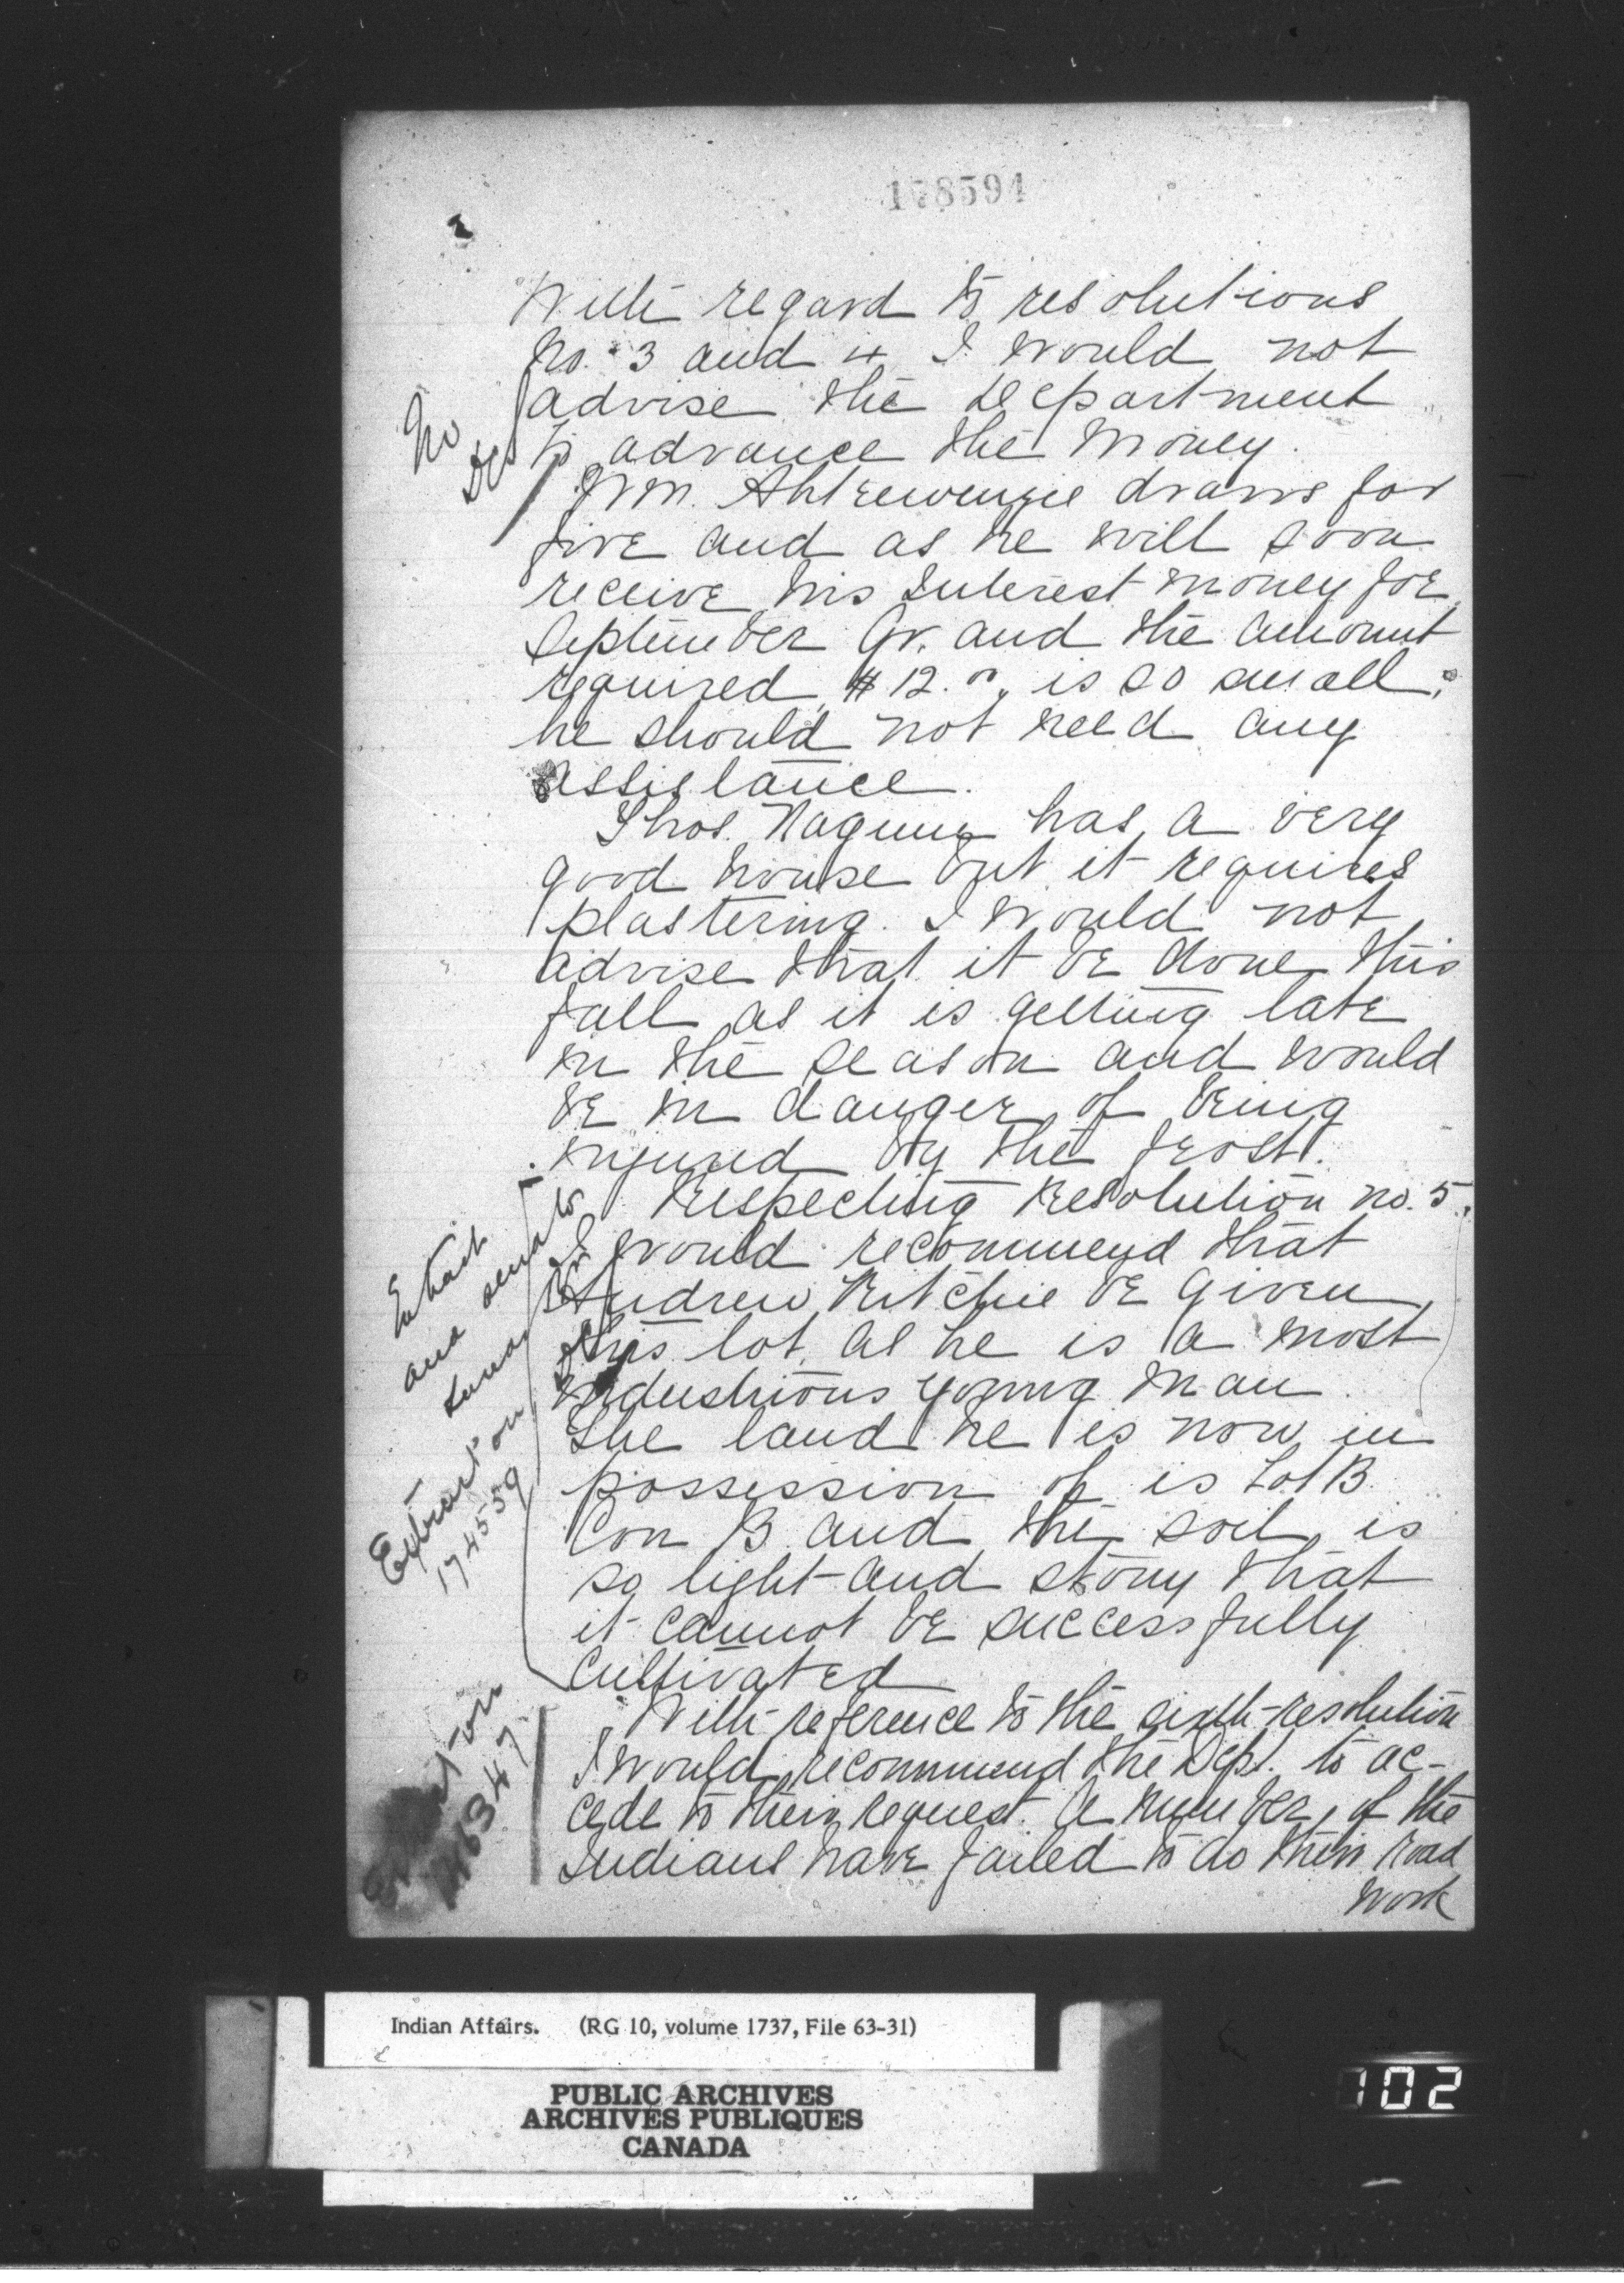 178594
2
With regard to resolutions
No. 3 and 4 I would not
advise the Department
to advance the money.
Wm. draws for
five and as he will soon
receive his Interest money for
September Qr. and the amount
required, $12.00, is so small,
he should not need any
assistance.
Thos. has a very
good house but it requires
plastering. I would not
advise that it be done this
fall as it is getting late
in the season and would
be in danger of being
injured by the frost.
Respecting Resolution no. 5,
I would recommend that
Andrew Ritchie be given
this lot as he is a most
industrious young man.
The land he is now in
possession of is Lot B
Con B and the soil is
so light and stony that
it cannot be successfully
cultivated
With reference to the sixth resolution
I would recommend the Dept. to ac-
cede to their request. A number of the
Indians have failed to do their road
work
No
Extract
and send to
Extract on
174559
on
Indian Affairs. (RG 10, volume 1737, File 63-31)
PUBLIC ARCHIVES
ARCHIVES PUBLIQUES
CANADA
102